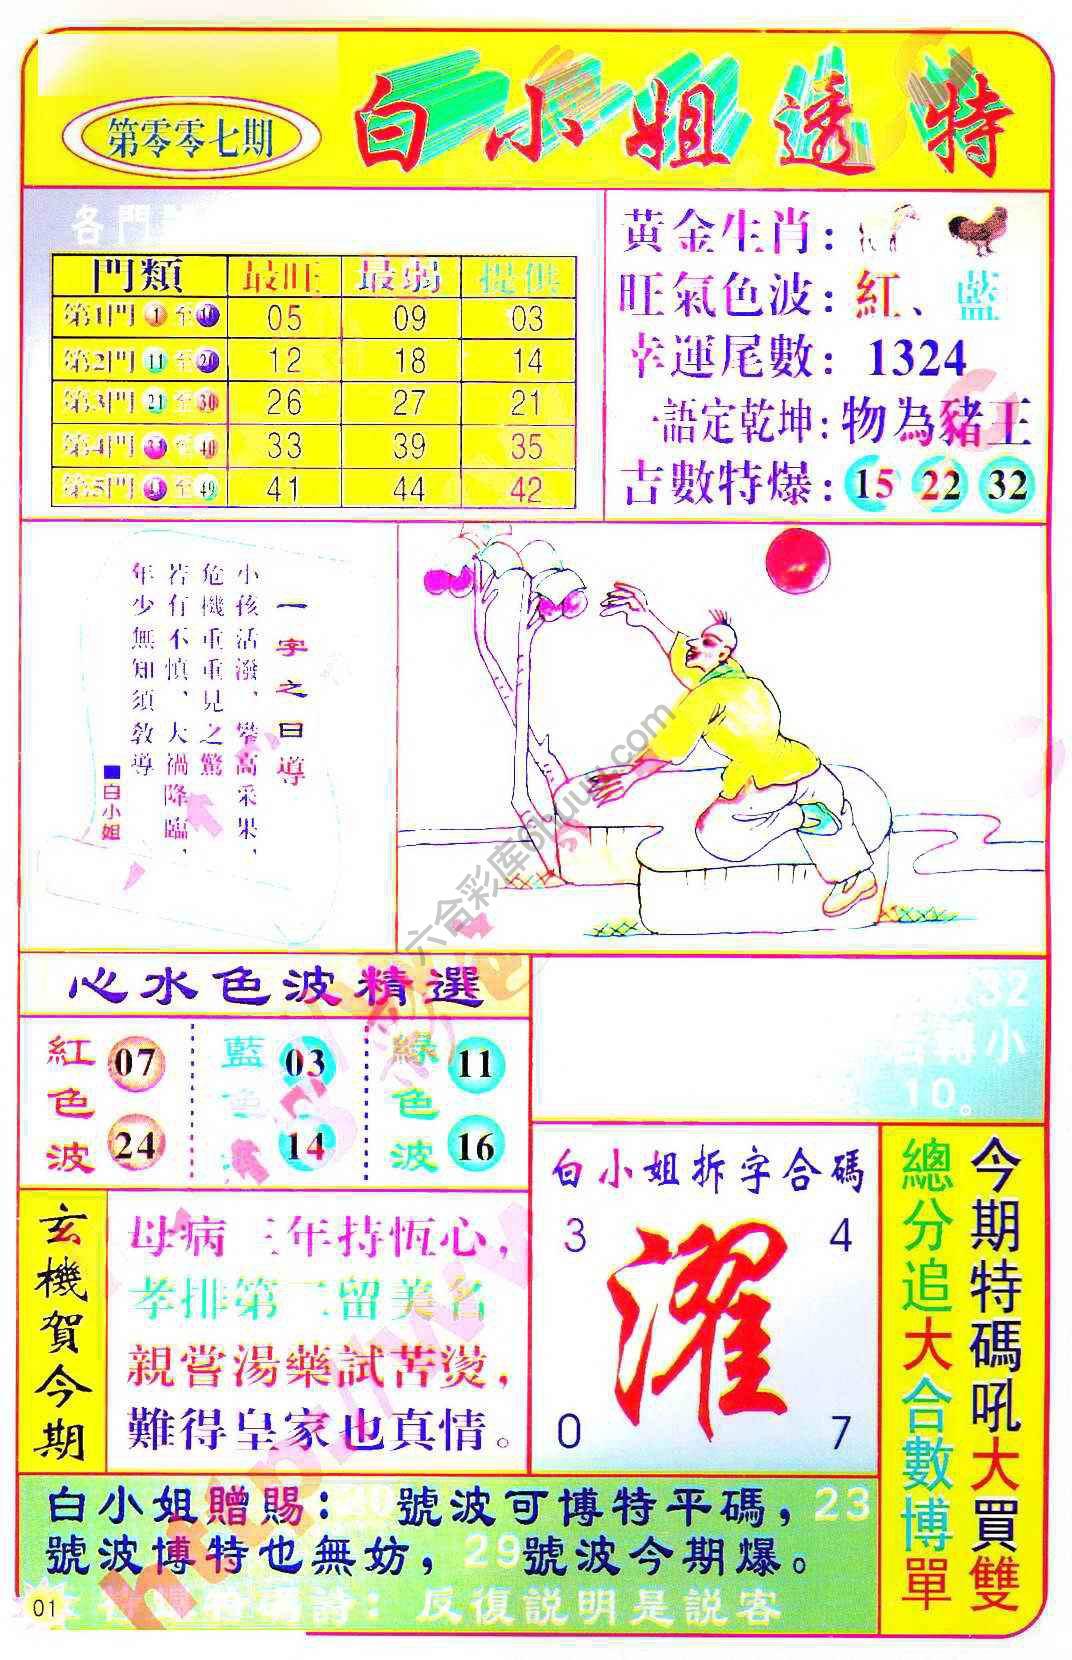 第零零七期
白小姐透特
各門
門類 最旺 最弱 提供
第1門 1 至 10 05 09 03
第2門 11 至 20 12 18 14
第3門 21 至 30 26 27 21
第4門 31 至 40 33 39 35
第5門 41 至 49 41 44 42
黃金生肖:
旺氣色波: 紅、藍
幸運尾數: 1324
一語定乾坤: 物為豬王
古數特爆: 15 22 32
一字之曰導
小孩活潑、攀高采果、
危機重重見之驚
若有不慎、大禍降臨、
年少無知須教導
■白小姐
六合彩库
心水色波精選
紅色波 07 24
藍色波 03 14
綠色波 11 16
32
轉小
10。
玄機賀今期
母病三年持恆心,
孝排第二留美名
親嘗湯藥試苦燙,
難得皇家也真情。
白小姐拆字合碼
3 4
濯
0 7
今期特碼吼大買雙
總分追大合數博單
白小姐贈賜: 20號波可博特平碼, 23
號波博特也無妨, 29號波今期爆。
詩: 反復説明是説客
01